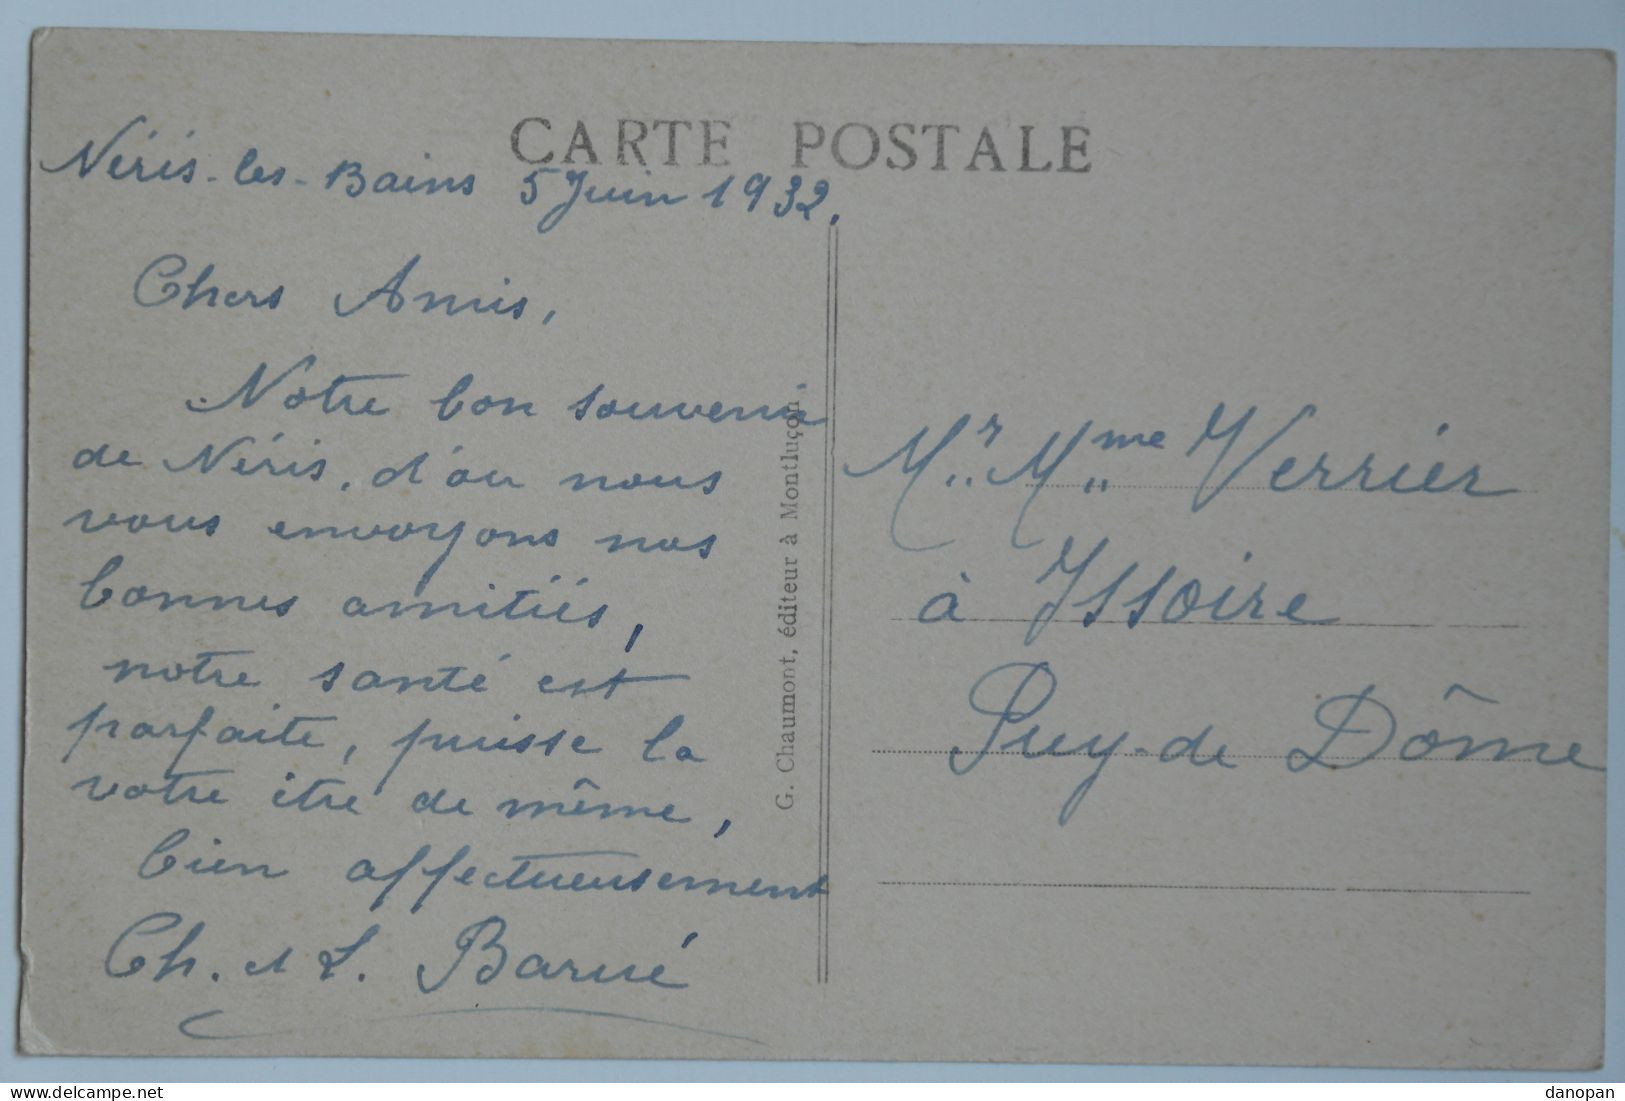 CARTE POSTALE
Néris-les-Bains 5 Juin 1932.
Chers Amis,
Notre bon souvenir
de Néris, d'ou nous
vous envoyons nos
bonnes amitiés,
notre santé est
parfaite, puisse la
votre être de même,
bien affectueusement
Ch. et L. Barué
G. Chaumont, éditeur à Montluçon
Mr. Mme Verrier
à Issoire
Puy-de Dôme
danopan